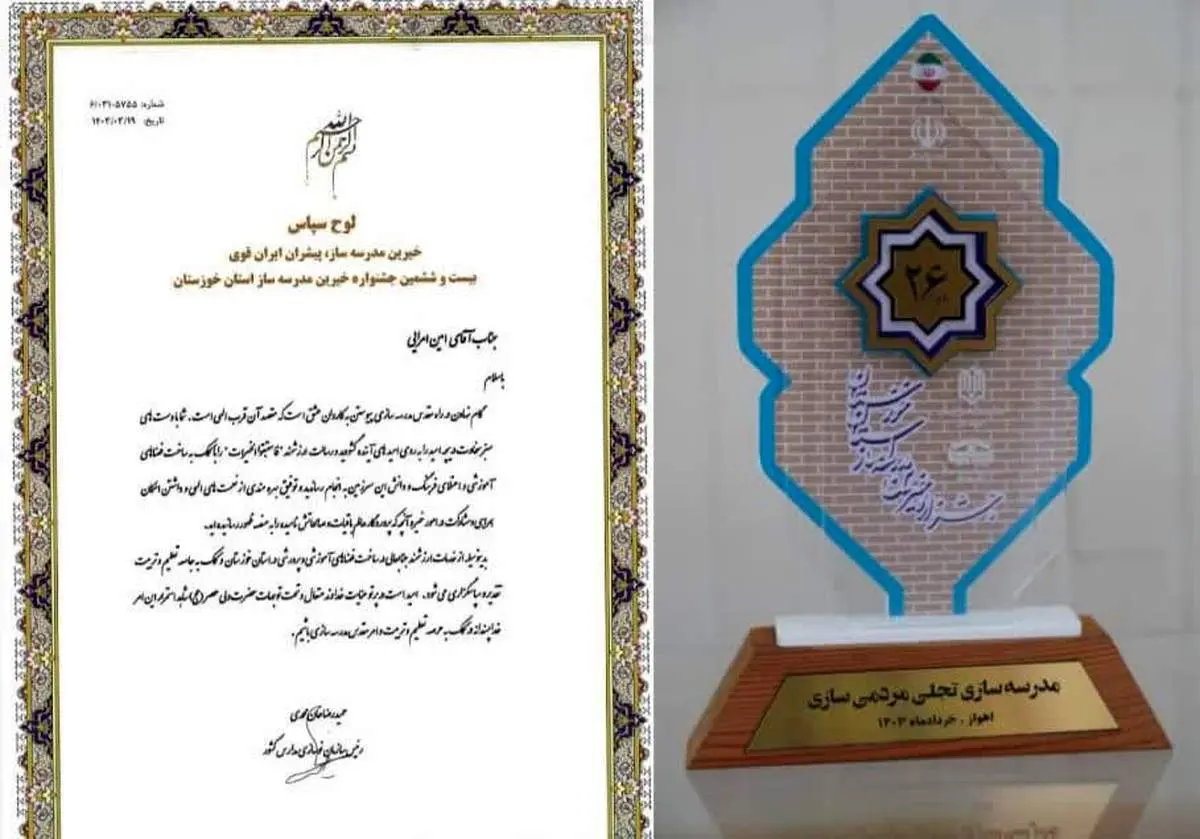 شماره: ۶/۰۳۱۰۵۷۵۵
تاریخ: ۱۴۰۳/۰۳/۱۹
بسم الله الرحمن الرحیم
لوح سپاس
خیرین مدرسه ساز، پیشران ایران قوی
بیست و ششمین جشنواره خیرین مدرسه ساز استان خوزستان
جناب آقای امین امرایی
باسلام
گام نهادن در راه مقدس مدرسه سازی پیوستن به کاروان عشق است که مقصد آن قرب الهی است. شما با دست های
سبز سخاوت دریچه امید را به روی امید های آینده گشودید و رسالت ارزشمند "فاستبقوا الخیرات" را با کمک به ساخت فضاهای
آموزشی و اعتلای فرهنگ و دانش این سرزمین به انجام رساندید و توفیق بهره مندی از نعمت های الهی و داشتن امکان
همراهی و مشارکت در امور خیر، آنچه که پروردگار عالم باقیات و صالحاتش نامیده را به منصه ظهور رسانده اید.
بدینوسیله از خدمات ارزشمند جنابعالی در ساخت فضاهای آموزشی و پرورشی در استان خوزستان و کمک به جامعه تعلیم و تربیت
تقدیر و سپاسگزاری می شود. امید است در پرتو عنایت خداوند متعال و تحت توجهات حضرت ولی عصر (عج) شاهد استمرار این امر
خداپسندانه و کمک به عرصه تعلیم و تربیت و امر مقدس مدرسه سازی باشیم.
حمیدرضا خان محمدی
رئیس سازمان نوسازی مدارس کشور
۲۶
جشنواره خیرین مدرسه ساز
استان
خوزستان
مدرسه سازی تجلی مردمی سازی
اهواز . خردادماه ۱۴۰۳